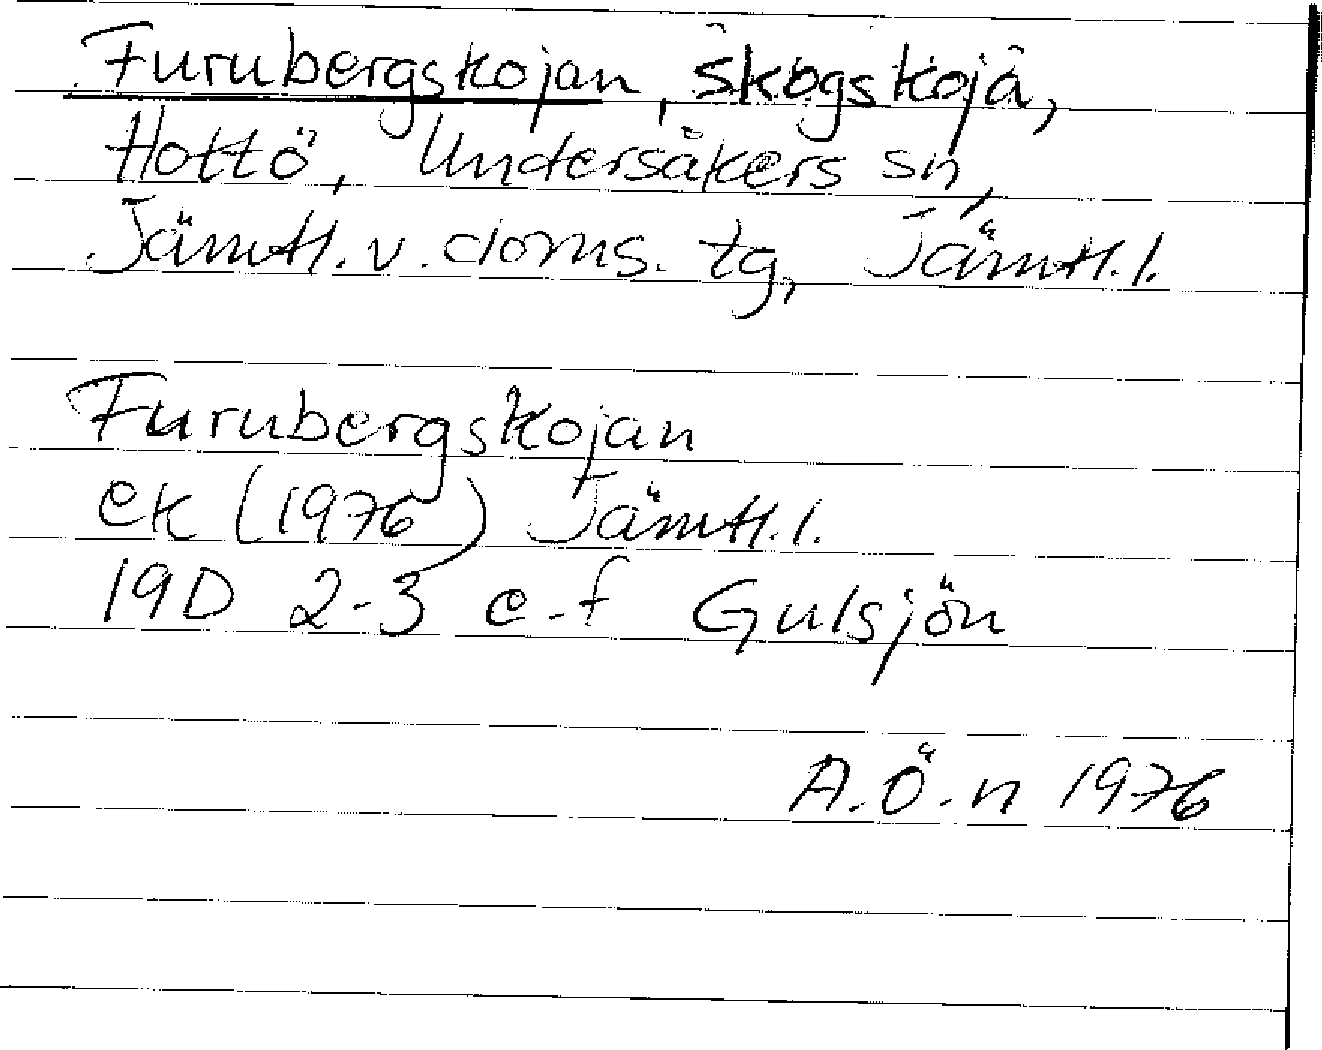 Furubergskojan, skogskoja,
Hottö, Undersåkers sn,
Jämtl. v. doms. tg, Jämtl. l.
Furubergskojan
ek (1976) Jämtl. l.
19D 2-3 e-f Gulsjön
A. Ö-n 1976